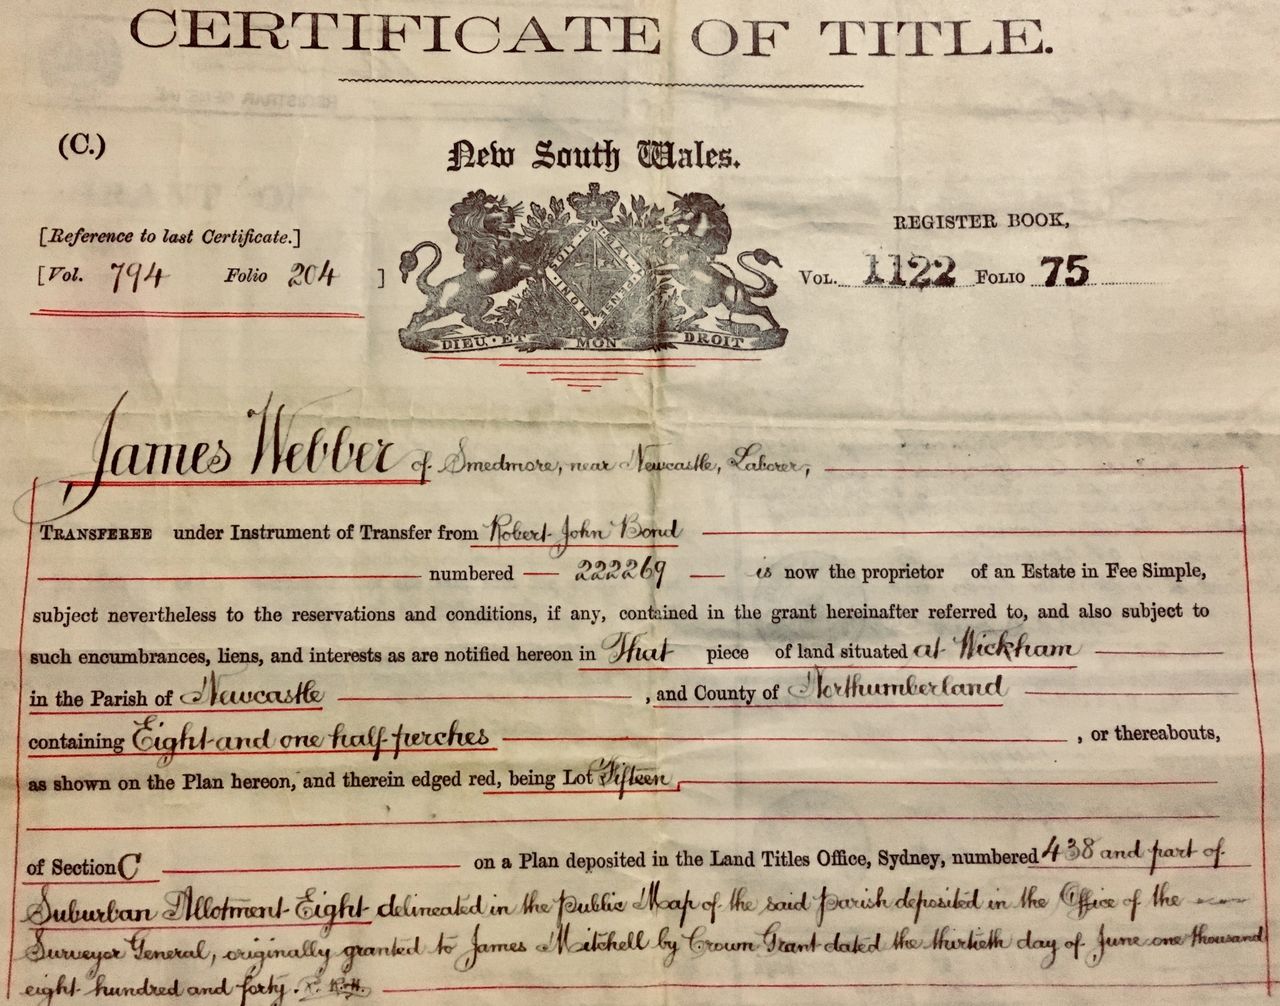 CERTIFICATE OF TITLE.
(C.)
New South Wales.
[Reference to last Certificate.]
[Vol. 794 Folio 204 ]
REGISTER BOOK,
VOL. 1122 FOLIO 75
SOIT
HONI
DIEU · ET MON DROIT
James Webber of Smedmore, near Newcastle, Laborer,
TRANSFEREE under Instrument of Transfer from Robert John Bond
numbered 222269 is now the proprietor of an Estate in Fee Simple,
subject nevertheless to the reservations and conditions, if any, contained in the grant hereinafter referred to, and also subject to
such encumbrances, liens, and interests as are notified hereon in That piece of land situated at Wickham
in the Parish of Newcastle , and County of Northumberland
containing Eight and one half perches , or thereabouts,
as shown on the Plan hereon, and therein edged red, being Lot Fifteen,
of Section C on a Plan deposited in the Land Titles Office, Sydney, numbered 438 and part of
Suburban Allotment Eight delineated in the Public Map of the said parish deposited in the Office of the
Surveyor General, originally granted to James Mitchell by Crown Grant dated the thirtieth day of June one thousand
eight hundred and forty.